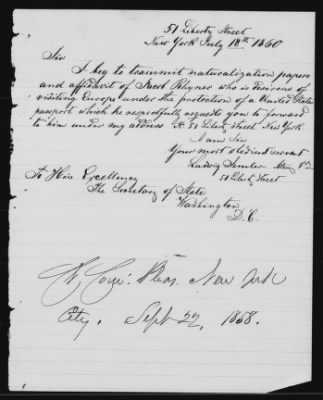 51 Liberty Street
New York July 18th 1860
Sir
I beg to transmit naturalization papers
and affidavit of Jacob Rhyner who is desirous of
visiting Europe under the protection of a United States
passport which he respectfully requests you to forward
to him under my address No 51 Liberty Street New York
I am Sir
Your most obedient servant
Ludwig
51 Liberty Street
To His Excellency
The Secretary of State
Washington
D.C.
Pleas. New York
City. Sept 22, 1858.